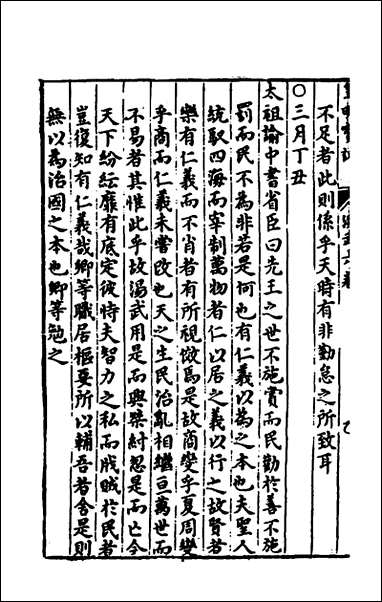 不足者此則係乎天時有非勤怠之所致耳
○三月丁丑
太祖諭中書省臣曰先王之世不施賞而民勸於善不施
罰而民不為非若是何也有仁義以為之本也夫聖人
統馭四海而宰制萬物者仁以居之義以行之故賢者
樂有仁義而不肖者有所視傚焉是故商變乎夏周變
乎商而仁義未嘗改也天之生民治亂相繼亘萬世而
不易者其惟此乎故湯武用是而興桀紂忽是而亡今
天下紛紜靡有底定彼恃夫智力之私而戕賊於民者
豈復知有仁義哉卿等職居樞要所以輔吾者舍是則
無以為治國之本也卿等勉之